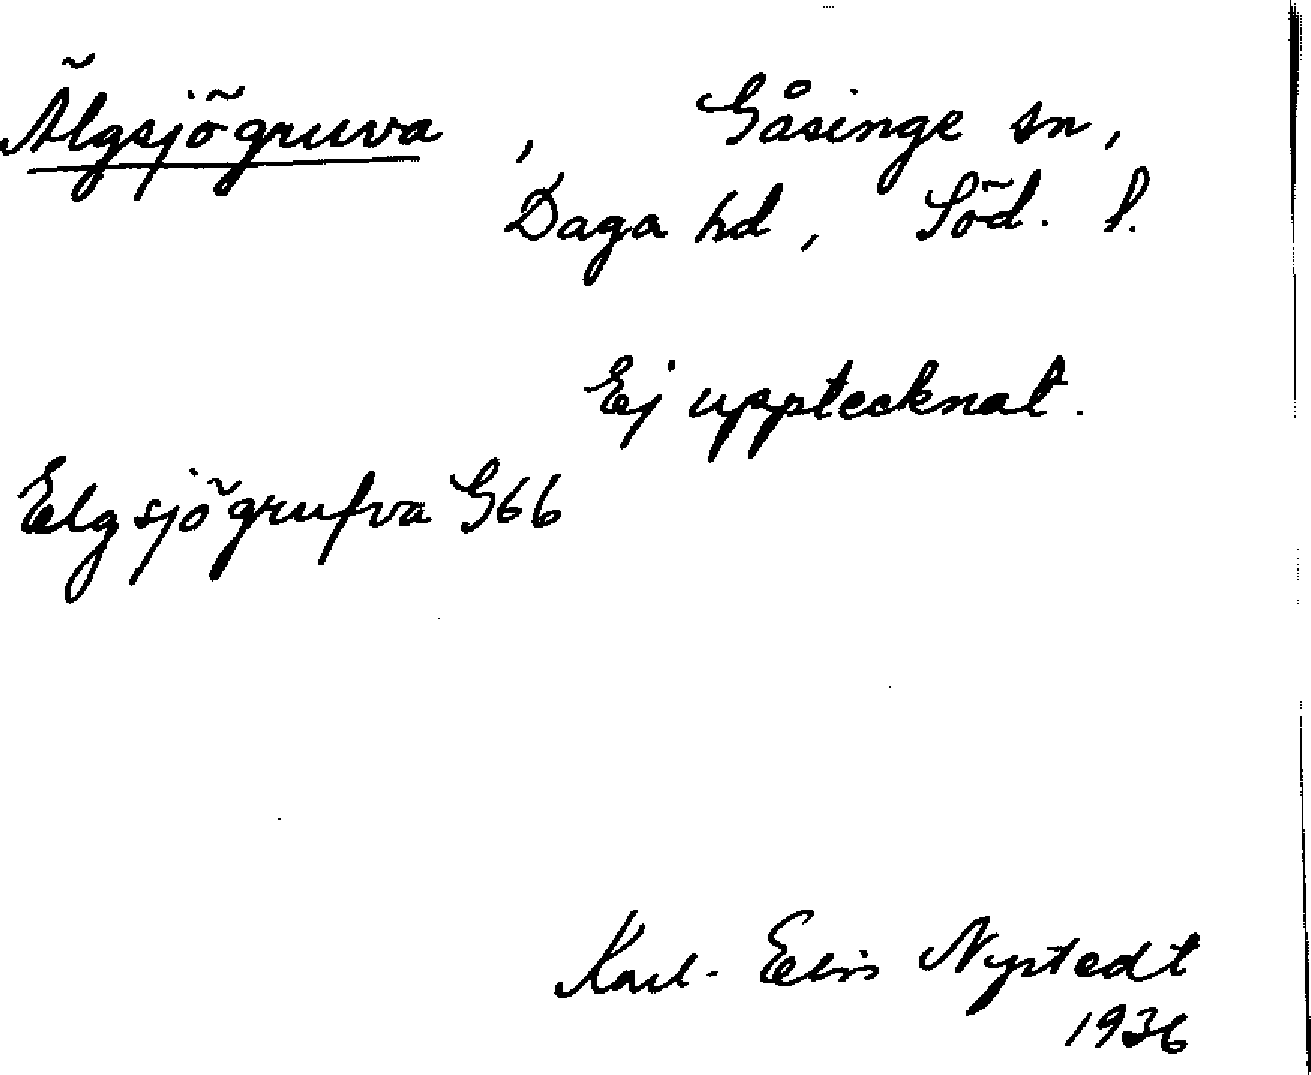 Älgsjögruva, Gåsinge sn,
Daga hd, Söd. l.
Ej upptecknat.
Elgsjögrufva G66
Karl-Elis Nystedt
1936